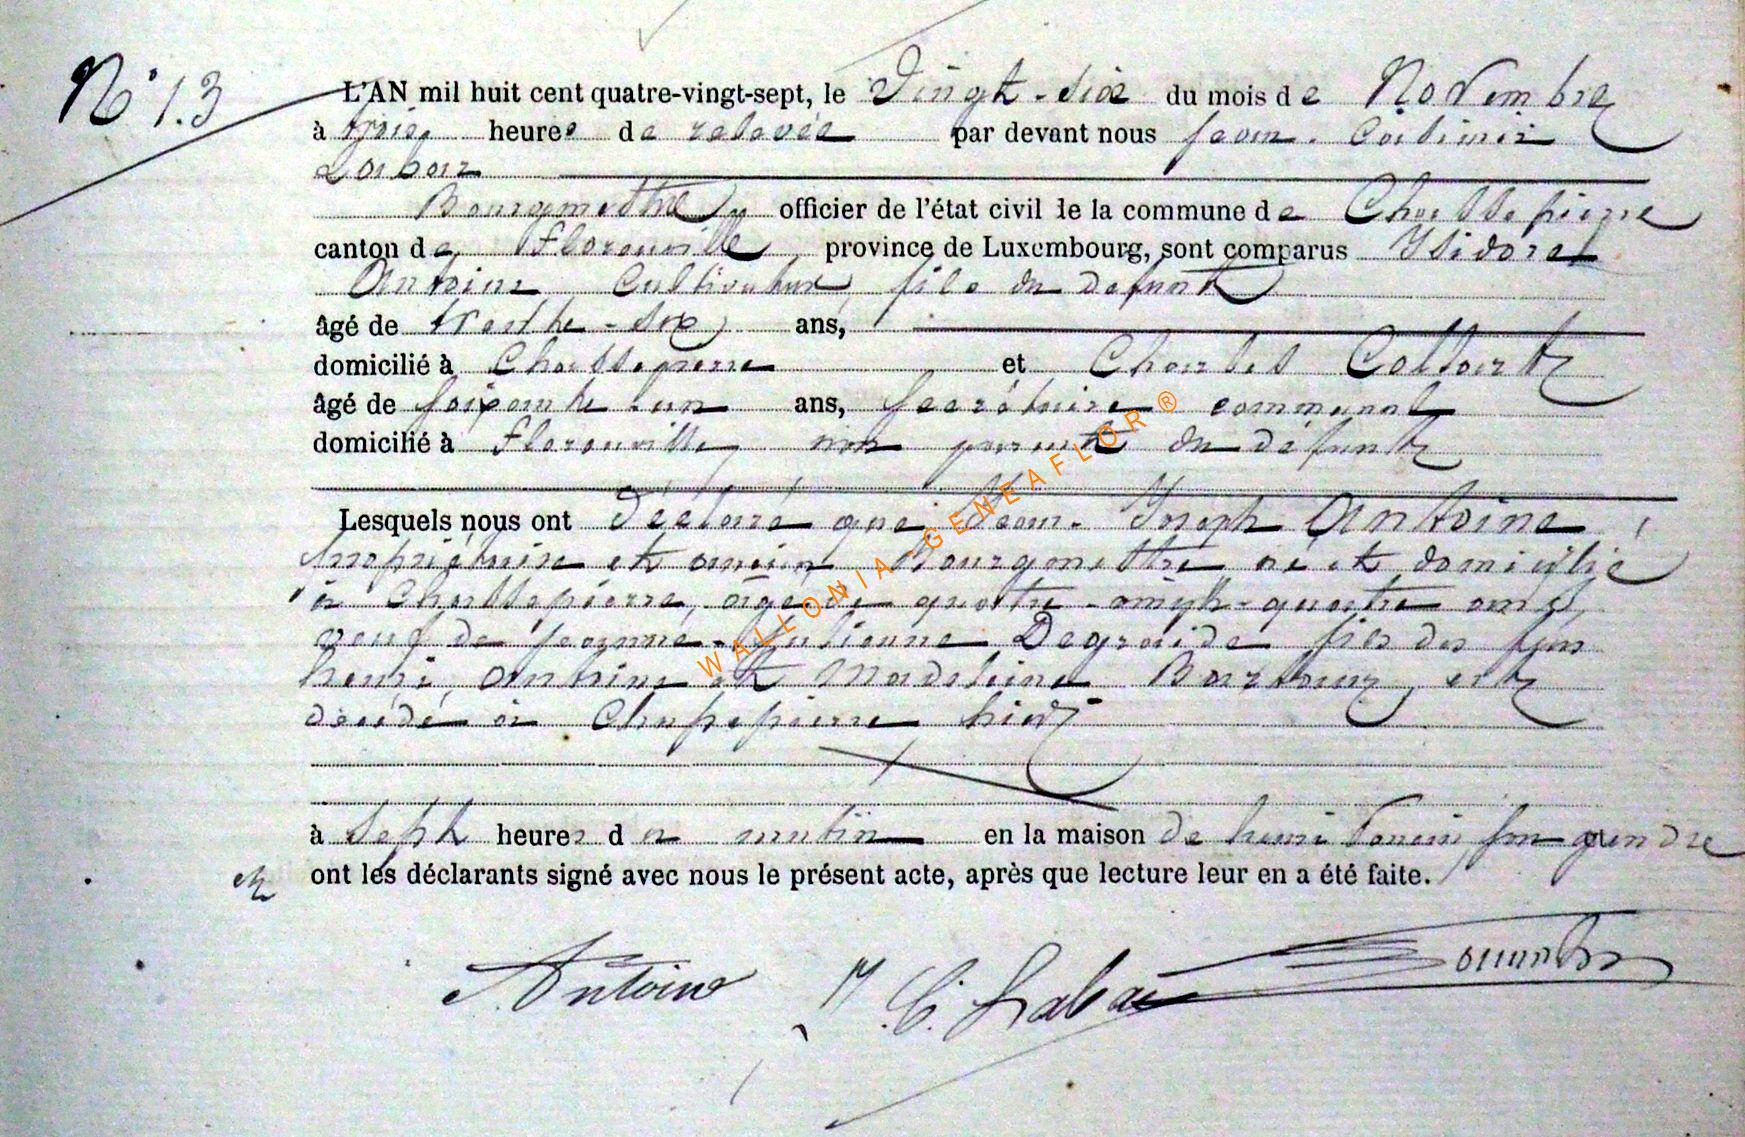 N° 13
L'AN mil huit cent quatre-vingt-sept, le Vingt-Six du mois de Novembre
à trois heures de relevée par devant nous Jean. Casimir
Labar
Bourgmestre officier de l'état civil de la commune de Chassepierre
canton de Florenville province de Luxembourg, sont comparus Isidore
Antoine Cultivateur, fils du défunt
âgé de trente-six ans,
domicilié à Chassepierre et Charles Collart
âgé de soixante-un ans, secrétaire communal
domicilié à Florenville non parent du défunt
Lesquels nous ont déclaré que Jean-Joseph Antoine,
propriétaire et ancien Bourgmestre né et domicilié
à Chassepierre, âgé de quatre-vingt-quatre ans,
veuf de Jeanne-Julienne Degraide fils des feus
henri Antoine et Madeleine, est
décédé à Chassepierre hier
à Sept heures du matin en la maison de henri son gendre
ont les déclarants signé avec nous le présent acte, après que lecture leur en a été faite.
Antoine C. Labar
WALLONIA GENEAFLOR ®